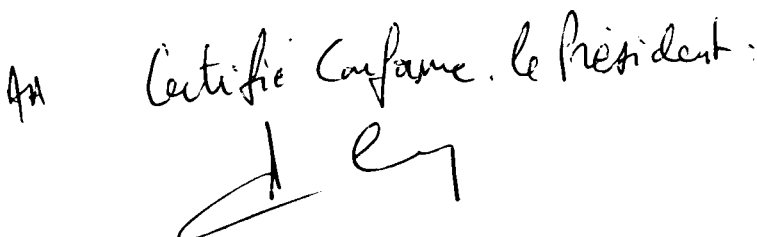 AH Certifié Conforme. le Président.